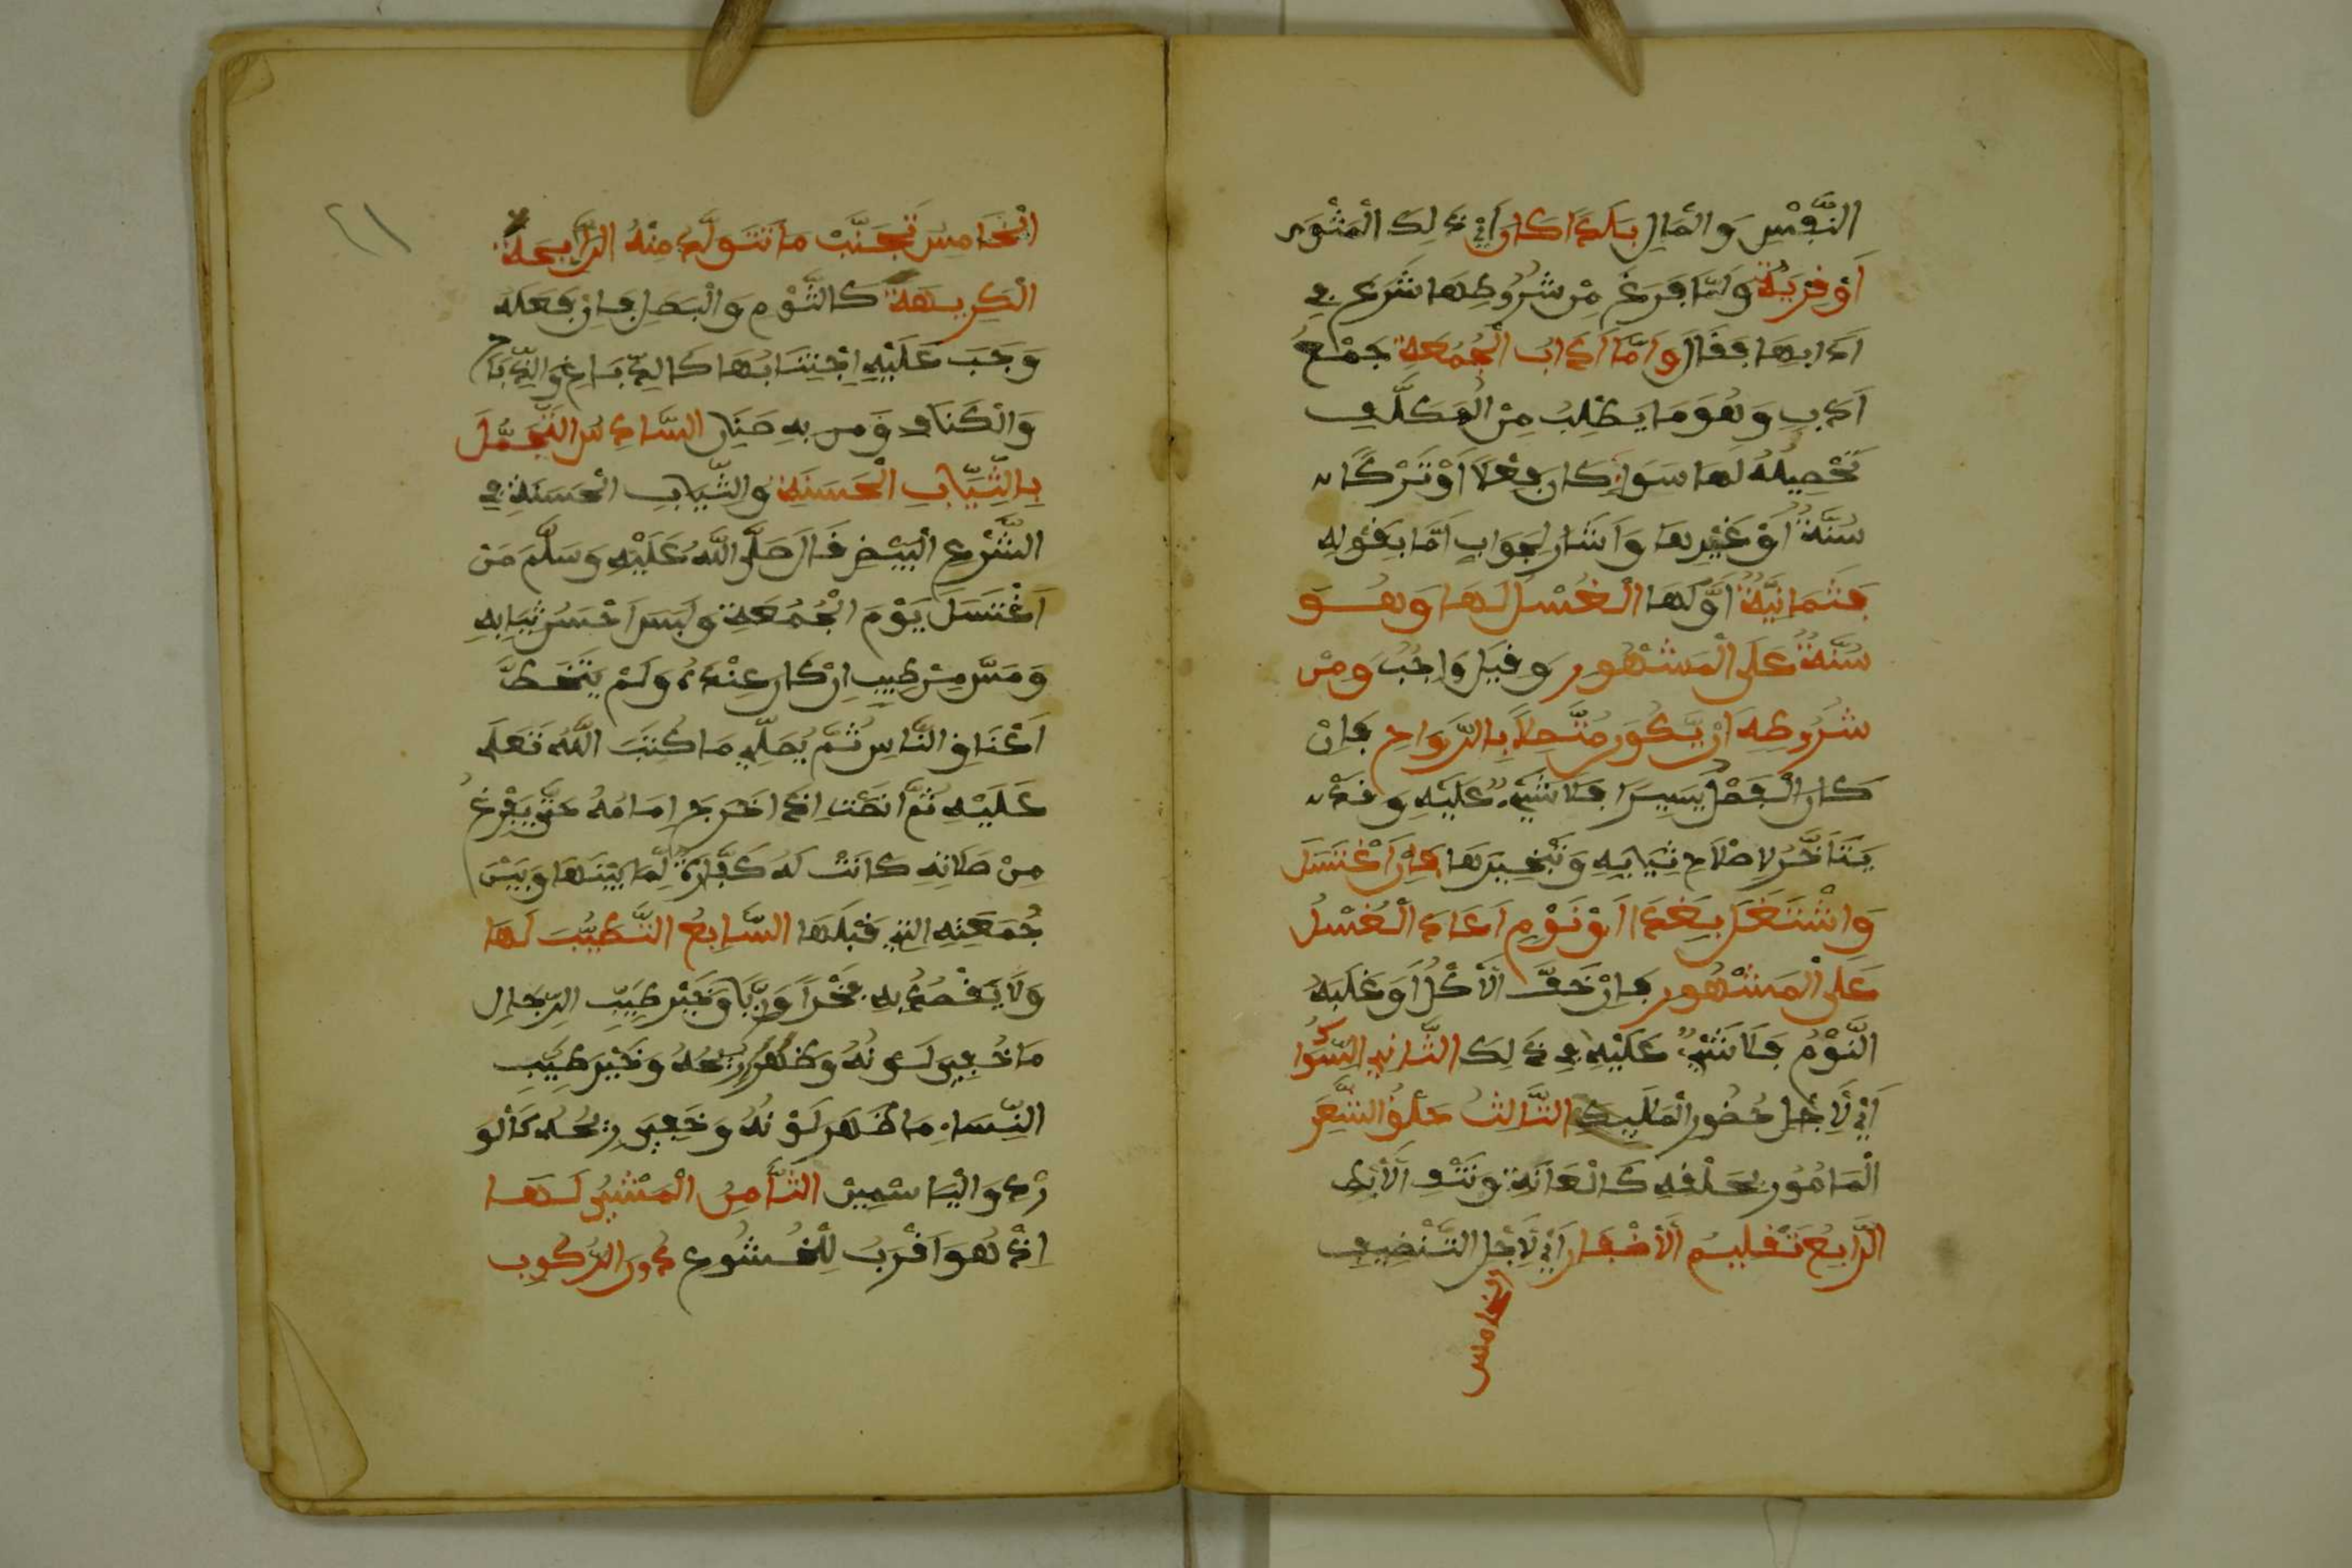 النَّفْسِ وَالْمَالِ بَلَدًا كَانَ أَيْ ذَلِكَ الْمَثْوَى
أَوْ قَرْيَةً وَلَمَّا فَرَغَ مِنْ شُرُوطِهَا شَرَعَ فِي
آدَابِهَا فَقَالَ وَأَمَّا آدَابُ الْجُمُعَةِ جَمْعُ
أَدَبٍ وَهُوَ مَا يَطْلُبُ مِنَ الْمُكَلَّفِ
تَحْصِيلُهُ لَهَا سَوَاءٌ كَانَ فِعْلًا أَوْ تَرْكًا
سُنَّةً أَوْ غَيْرِهَا وَأَشَارَ لِجَوَابِ أَمَّا بِقَوْلِهِ
فَثَمَانِيَّةٌ أَوَّلُهَا الْغُسْلُ لَهَا وَهُوَ
سُنَّةٌ عَلَى الْمَشْهُورِ وَقِيلَ وَاجِبٌ وَمِنْ
شُرُوطِهِ أَنْ يَكُونَ مُتَّصِلًا بِالرَّوَاحِ فَإِنْ
كَانَ الْفَصْلُ يَسِيرًا فَلَا شَيْءَ عَلَيْهِ وَقَدْ
يَتَأَخَّرُ لِإِصْلَاحِ ثِيَابِهِ وَتَبْخِيرِهَا فَإِنِ اغْتَسَلَ
وَاشْتَغَلَ بِغَدَاءٍ أَوْ نَوْمٍ أَعَادَ الْغُسْلَ
عَلَى الْمَشْهُورِ فَإِنْ خَفَّ الْأَكْلُ أَوْ غَلَبَهُ
النَّوْمُ فَلَا شَيْءٌ عَلَيْهِ فِي ذَلِكَ الثَّانِي السِّوَاكُ
أَيْ لِأَجْلِ حُضُورِ الْمَلَئِكَةِ الثَّالِثُ حَلْقُ الشَّعَرِ
الْمَأْمُورِ بِحَلْقِهِ كَالْعَانَةِ وَنَتْفِ الْأَبِطِ
الرَّابِعُ تَقْلِيمُ الْأَظْفَارِ أَيْ لِأَجْلِ التَّنْظِيفِ
الخامس
٢١
الْخَامِسُ تَجَنُّبُ مَا تَتَوَلَّدُ مِنْهُ الرَّائِحَةُ
الْكَرِيهَةُ كَالثَّوْمِ وَالْبَصَلِ فَإِنْ فَعَلَهُ
وَجَبَ عَلَيْهِ اجْتِنَابُهَا كَالدِّبَاغِ وَالذِّبَاحِ
وَالْكَنَّافِ وَمَن بِهِ صَيَنَانِ السَّادِسُ التَّجَمُّلُ
بِالثِّيَابِ الْحَسَنَةِ وَالثِّيَابِ الْحَسَنَةِ فِي
الشَّرْعِ الْبِيضِ قَالَ صَلَّى اللَّهُ عَلَيْهِ وَسَلَّمَ مَنْ
اغْتَسَلَ يَوْمَ الْجُمُعَةِ وَلَبِسَ أَحْسَنَ ثِيَابِهِ
وَمَسَّ مِنْ طِيبٍ إِنْ كَانَ عِنْدَهُ وَلَمْ يَتَخَطَّ
أَعْنَاقِ النَّاسِ ثُمَّ يُصَلِّي مَا كَتَبَ اللَّهُ تَعَلَى
عَلَيْهِ ثُمَّ أَنْصَتَ إِذَا خَرَجَ إِمَامُهُ حَتَّى يَفْرُغَ
مِنْ صَلَاتِهِ كَانَتْ لَهُ كَفَّارَةً لِمَا بَيْنَهَا وَبَيْنَ
جُمُعَتِهِ التِي قَبْلَهَا السَّابِعُ التَّطَيُّبُ لَهَا
وَلَا يَقْصُدُ بِهِ فَخْرًا وَرِيًّا وَخَيْرُ طِيبِ الرِّجَالِ
مَا خُفِيَ لَوْنُهُ وَظَهَرَ رِيحُهُ وَخَيْرُ طِيبِ
النِّسَاءِ مَا ظَهَرَ لَوْنُهُ وَخَفِيَ رِيحُهُ كَالْوَ
رْدِ وَالْيَاسْمِينِ الثَّامِنُ الْمَشْيُ لَهَا
إِذْ هُوَ أَقْرَبُ لِلْخُشُوعِ دُونَ الرُّكُوبِ